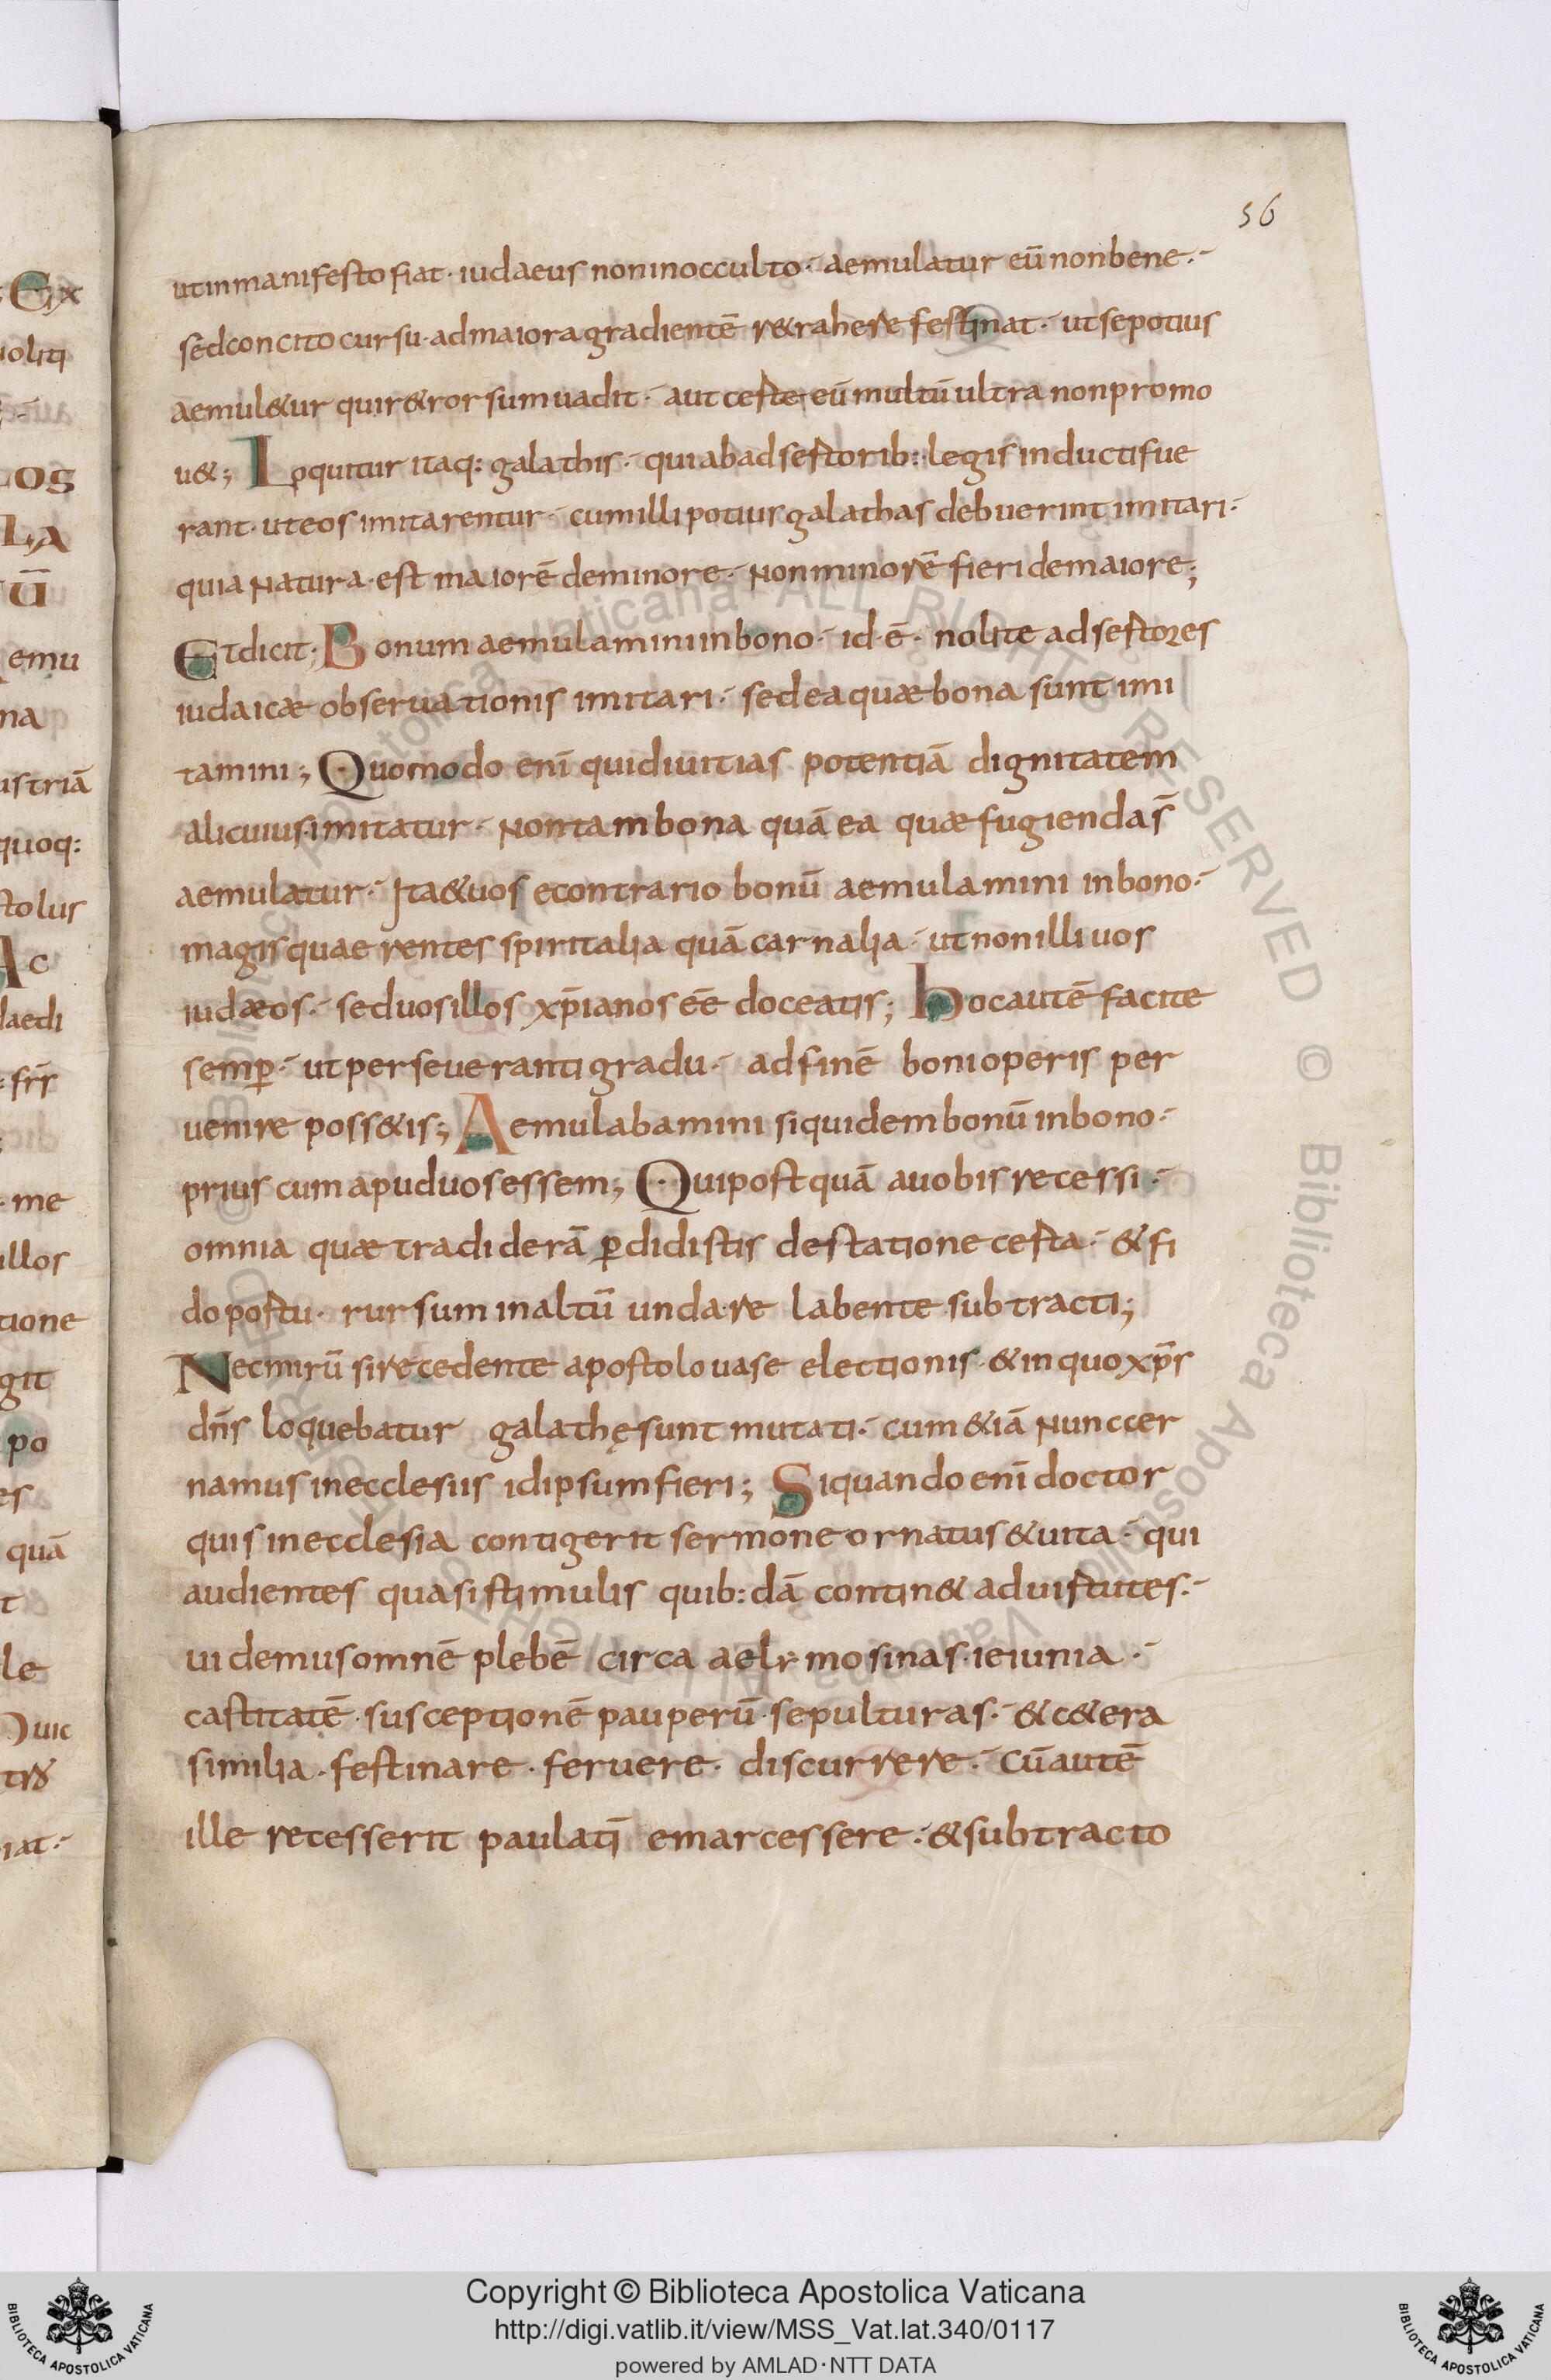 56
ut inmanifesto fiat · iudaeus noninocculto · aemulatur eū nonbene ·
sedconcito cursu · admaiora gradientē r&rahere festinat · utsepotius
aemul&ur quir&rorsum uadit · aut certe eū multū ultra nonpromo
u&; Loquitur itaq: galathis · quiabadsertorib: legis inductifue
rant · uteos imitarentur · cumilli potius galathas debuerint imitari ·
quia natura · est maiorē deminore · non minorē fieri demaiore;
Et dicit; Bonum aemulamini inbono · id · ē · nolite adsertores
iudaicæ obseruationis imitari · sed ea quæ bona sunt imi
tamini; Quomodo eni̅ quidiuitias potentiā dignitatem
alicuius imitatur · non tam bona quā ea quæ fugienda s̄
aemulatur · Ita&uos econtrario bonū aemulamini inbono ·
magis quaerentes spiritalia quā carnalia · ut nonilli uos
iudæos · seduosillos xp̄ianos eē doceatis; hoc autē facite
semp̱ · ut perseueranti gradu · ad finē boni operis per
uenire poss&is; Aemulabamini siquidem bonū inbono ·
prius cum apuduos essem; Quipostquā auobis recessi ·
omnia quæ tradiderā p̱didistis destatione certa · & fi
do portu · rursum inaltū undare labente subtracti;
Nec mirū sirecedente apostolo uase electionis · & in quo xp̄s
dn̄s loquebatur galathę sunt mutati · cum &iā nunc cer
namus inecclesiis idipsum fieri; Siquando eni̅ doctor
quis inecclesia contigerit sermone ornatus & uita · qui
audientes quasi stimulis quib:dā contin& aduirtutes ·
uidemus omnē plebē circa aelymosinas · ieiunia ·
castitatē · susceptionē pauperū · sepulturas · & c&era
similia · festinare · feruere · discurrere · Cū autē
ille recesserit paulati̅ emarcessere · & subtracto
Ex
uoliti
LOS
LA
Ū
emu
na
ustriā
quoq:
stolus
Ac
laedi
fr̄s
me
illos
tione
git
po
es
quā
t
le
uic
iat ·
© Biblioteca Apostolica Vaticana ALL RIGHTS RESERVED © Biblioteca Apostolica Vaticana ALL RIGHTS RESERVED
BIBLIOTECA APOSTOLICA VATICANA
Copyright © Biblioteca Apostolica Vaticana
http://digi.vatlib.it/view/MSS_Vat.lat.340/0117
powered by AMLAD·NTT DATA
BIBLIOTECA APOSTOLICA VATICANA